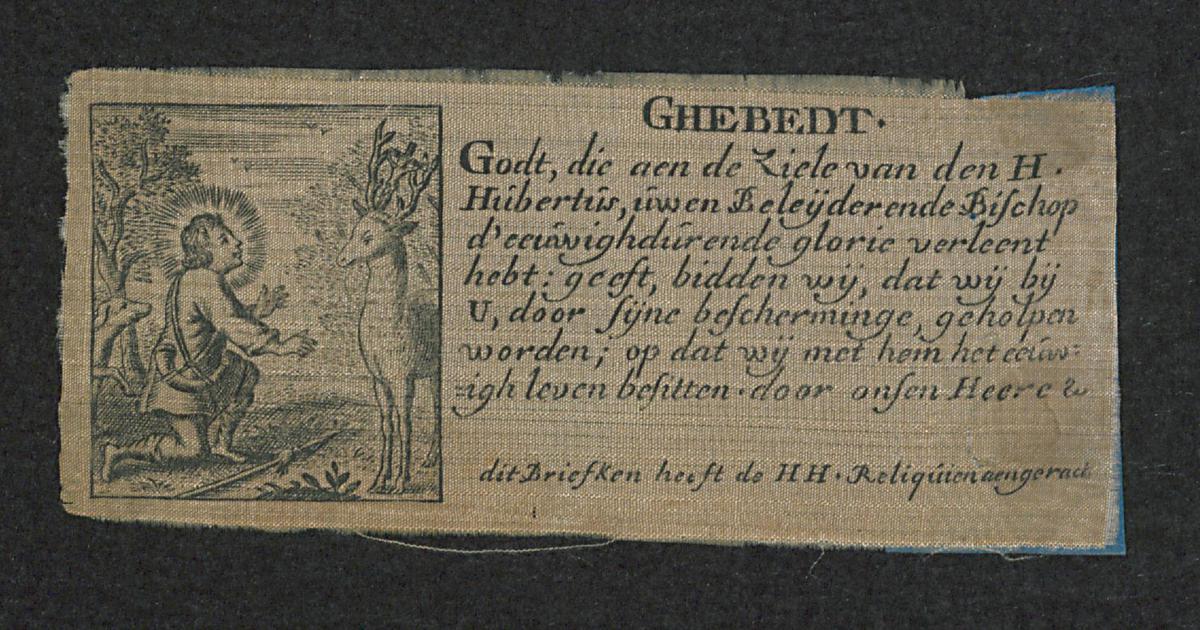 GHEBEDT.
Godt, die aen de Ziele van den H.
Hűbertűs, űwen Beleÿderende Biſchop
d'eeűwighdűrende glorie verleent
hebt: geeft, bidden wÿ, dat wÿ bÿ
U, door ſÿne beſcherminge, geholpen
worden; op dat wÿ met hem het eeűw=
=igh leven beſitten. door onſen Heere &
dit Briefken heeft de HH. Reliqűien aengeraeck